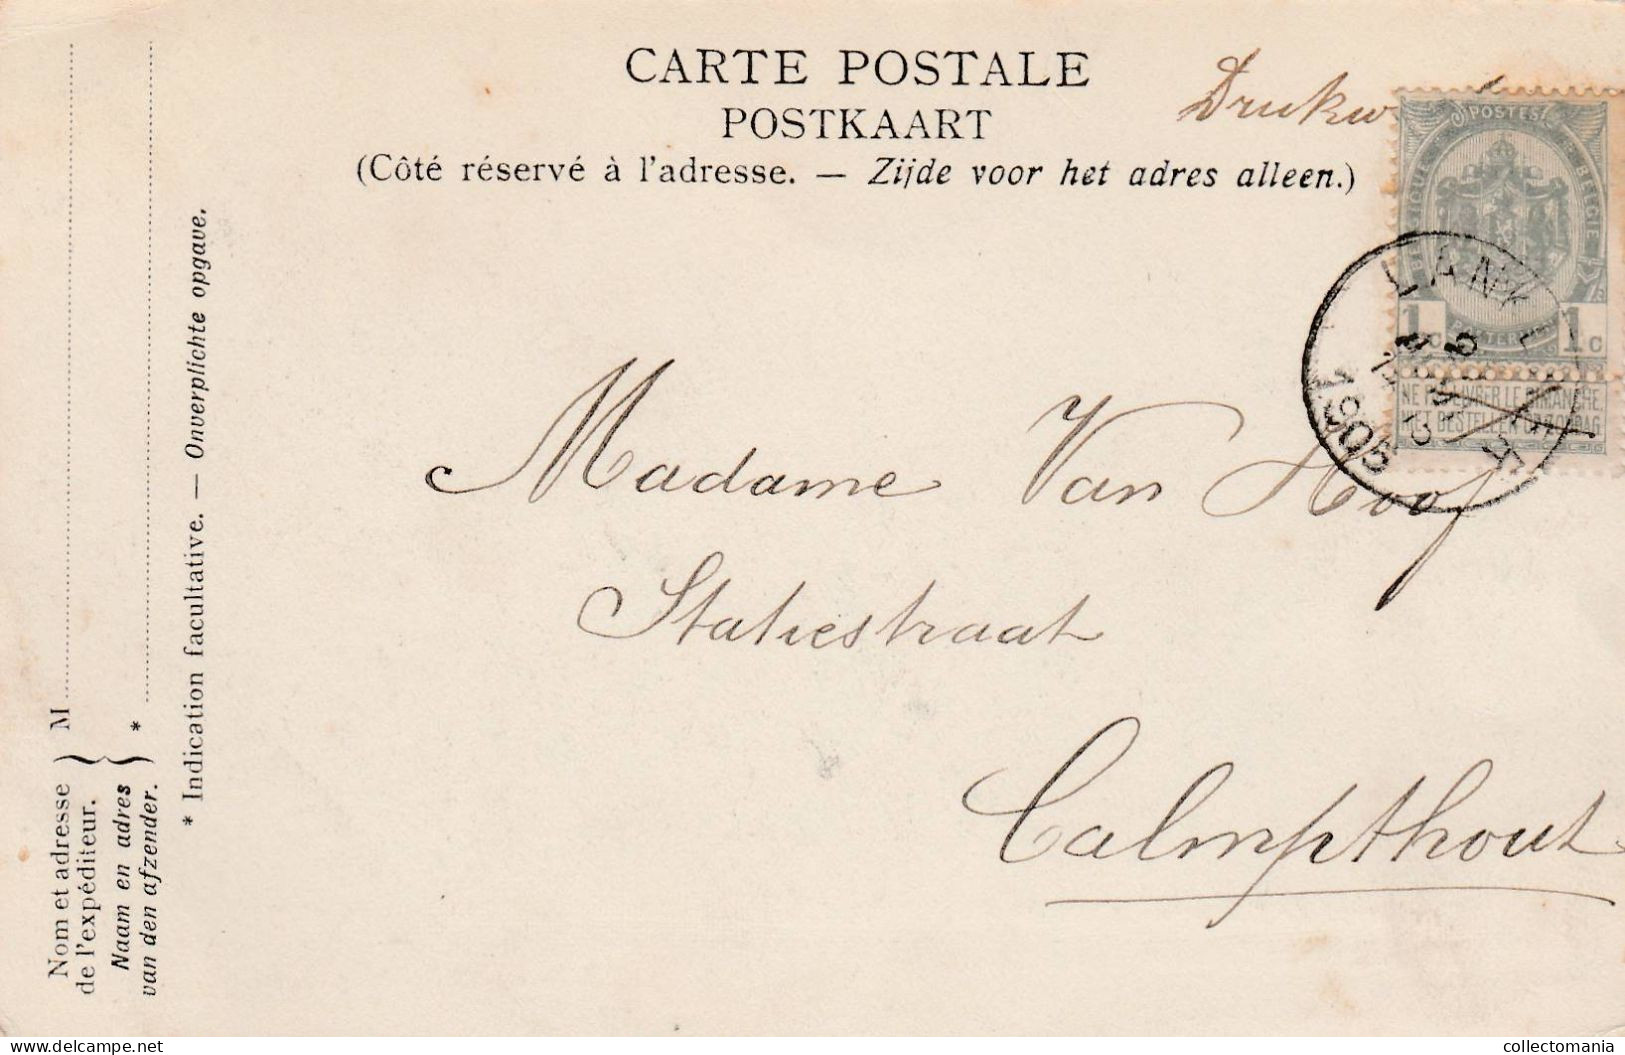 CARTE POSTALE
POSTKAART
(Côté réservé à l'adresse. — Zijde voor het adres alleen.)
Drukw
POSTES
BELGIQUE BELGIE
POSTERIJEN
1c 1c
NE PAS LIVRER LE DIMANCHE.
NIET BESTELLEN OP ZONDAG
1905
Madame Van Hoof
Statiestraat
Calmpthout
Nom et adresse
de l'expéditeur.
Naam en adres
van den afzender.
} M
} *
* Indication facultative. — Onverplichte opgave.
delcampe.net
collectomania